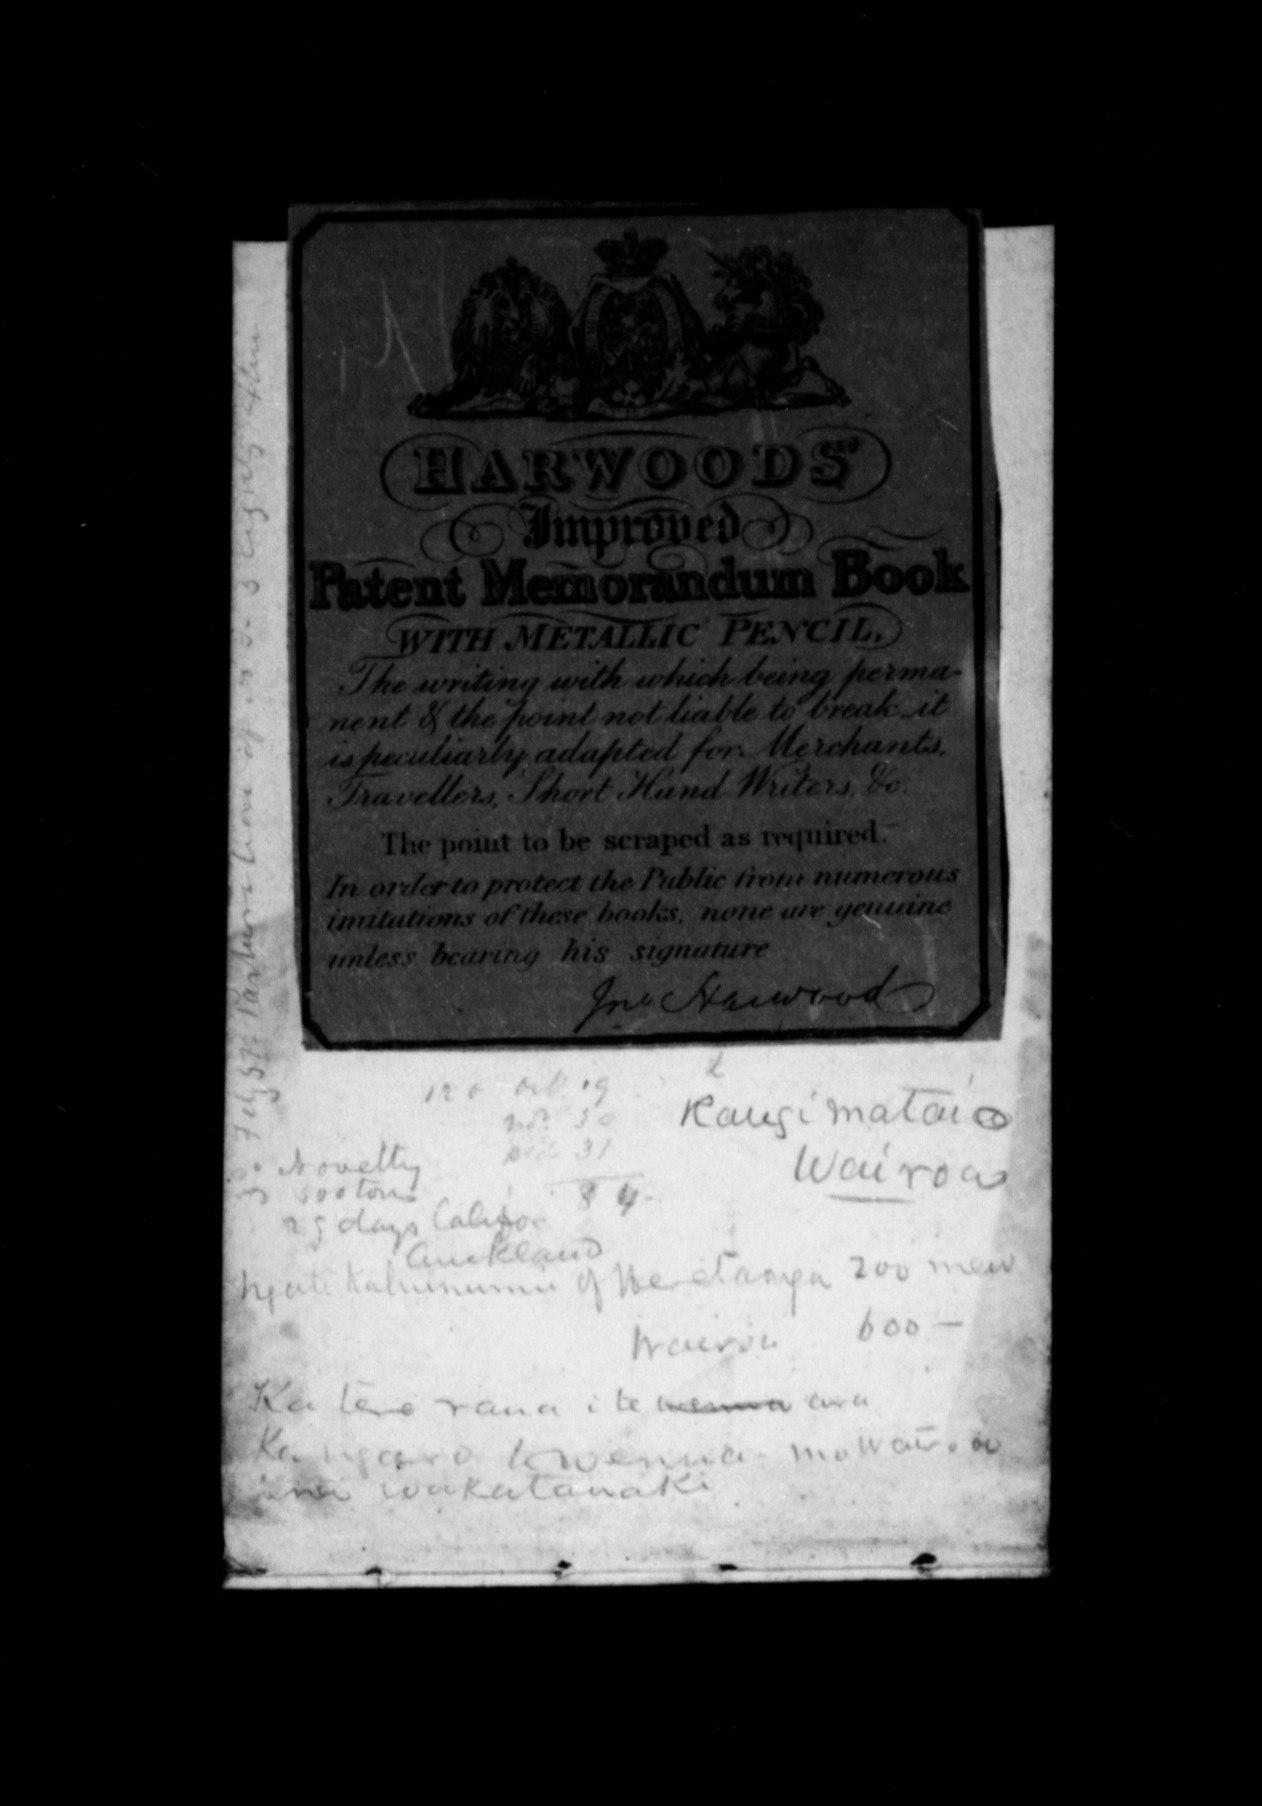 HARWOODS'
Improved
Patent Memorandum Book
WITH METALLIC PENCIL,
The writing with which being perma-
nent & the point not liable to break it
is peculiarly adapted for Merchants,
Travellers, Short Hand Writers, &c.
The point to be scraped as required.
In order to protect the Public from numerous
imitations of these books, none are genuine
unless bearing his signature
Jno Harwood
120 Oct 19
Nov 30
Dec 31
84
Rangimataio
Wairoa
Novelty
500 tons
25 days
Auckland
Ngati Kahunumu of Heretanga 200 men
Wairoa 600 —
Ka tere rana i te wenua ara
Ka ngaro te wenua mo Wairoa